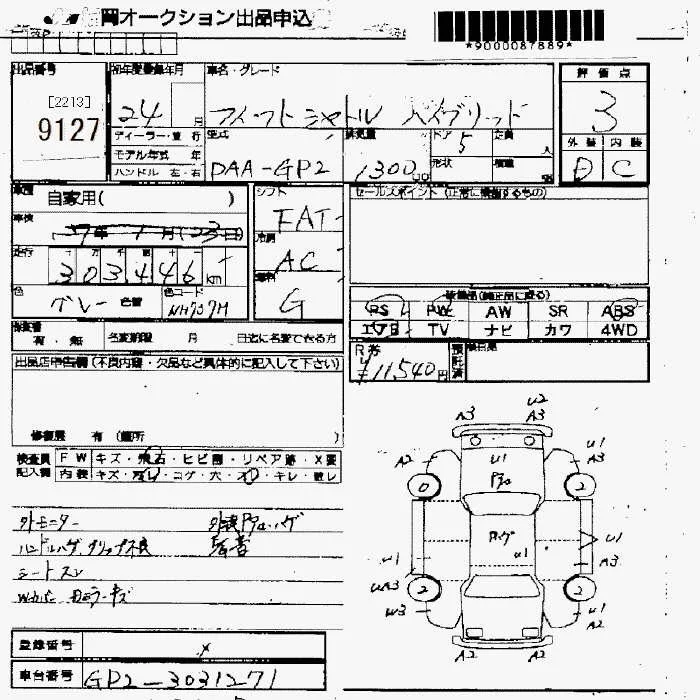 岡オークション出品申込
*9000087889*
出品番号
[2213]
9127
初年度登録年月
24 月
ディーラー・並 行
モデル年式 年
ハンドル 左・右
車名・グレード
フィットシャトル ハイブリッド
型式
DAA-GP2
排気量
1300
ドア
5
定員
人
形状
積載
評価点
3
外装 内装
D C
車歴
自家用( )
車検
走行
303446km
色
グレー 色替
色コード
NH737M
シフト
FAT
冷房
AC
燃料
G
セールスポイント(正常に機能するもの)
装備品(純正品に限る)
PS PW AW SR ABS
エアB TV ナビ カワ 4WD
有・無 名変期限 月 日迄に名変できる方
R券
¥11,540円
預託済
出品店申告欄(不良内容・欠品など具体的に記入して下さい)
修復歴 有(箇所 )
検査員
記入欄
FW キズ・飛石・ヒビ割・リペア跡・X要
内装 キズ・汚レ・コゲ・穴・スレ・キレ・傷レ
ハンドルハゲ グリップ不良
シートスレ
A3 U2
A3
A2 U1 U1
A3
0 2
ルーフ
U1 U1 U1
A3
UA3
2 2
W3 U1
A2
A2 A2
登録番号
車台番号 GP2-3031271